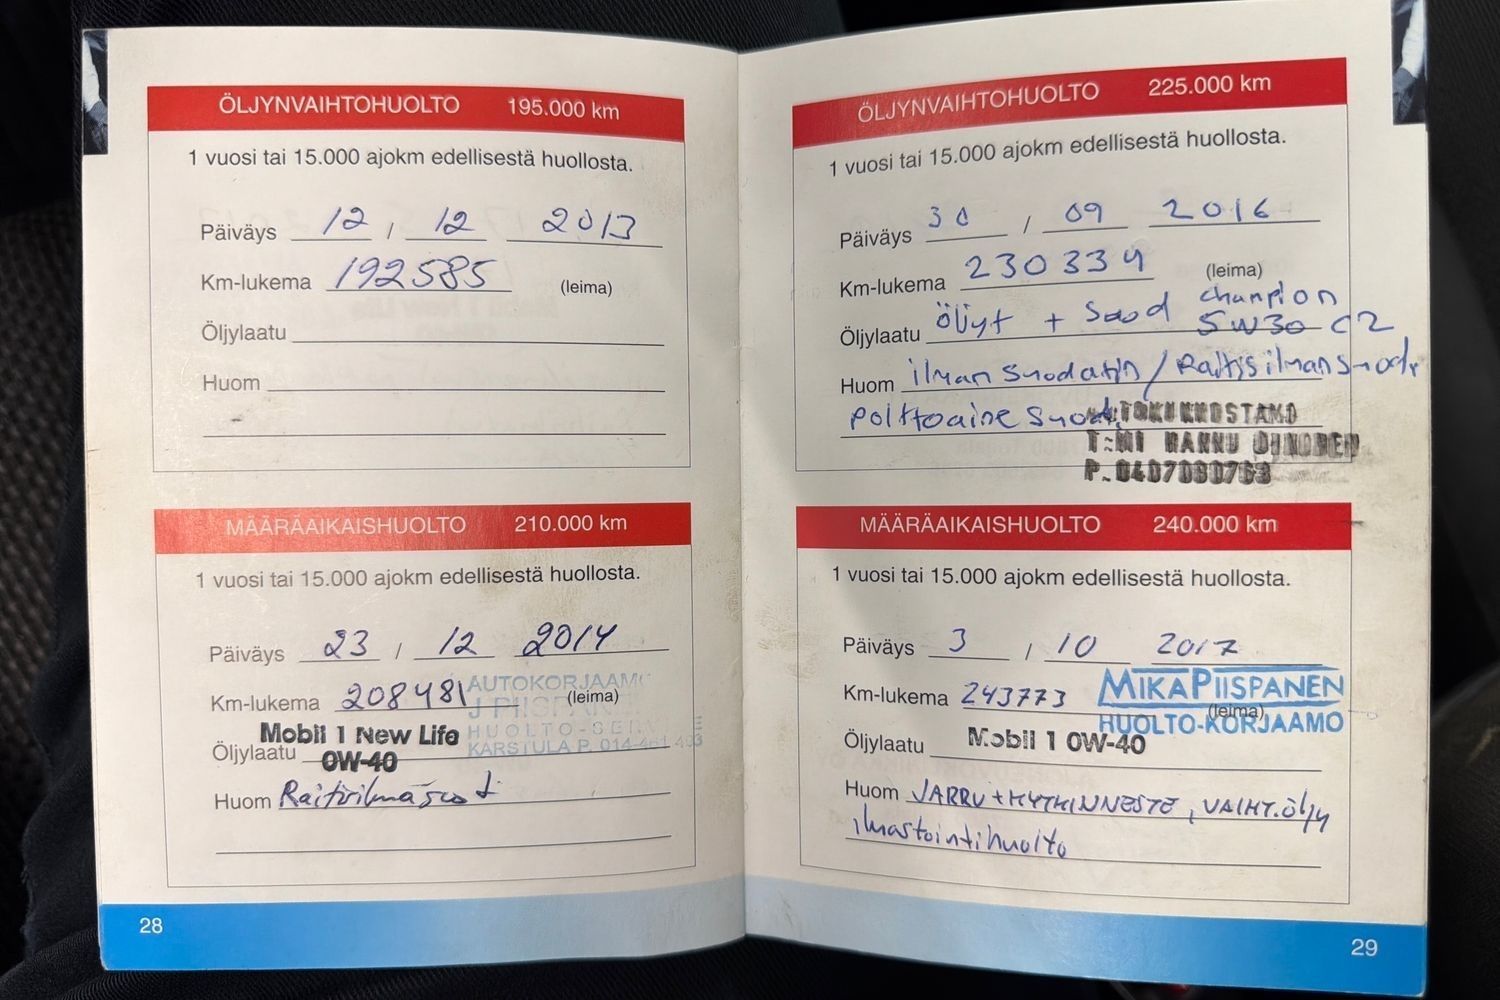 ÖLJYNVAIHTOHUOLTO 195.000 km
1 vuosi tai 15.000 ajokm edellisestä huollosta.
Päiväys 12 / 12 2013
Km-lukema 192585 (leima)
Öljylaatu
Huom
MÄÄRÄAIKAISHUOLTO 210.000 km
1 vuosi tai 15.000 ajokm edellisestä huollosta.
Päiväys 23 / 12 2014
AUTOKORJAAMO
Km-lukema 208481 (leima)
J PIISPANEN
Mobil 1 New Life
HUOLTO-SERVICE
Öljylaatu 0W-40
KARSTULA P. 014-461 493
Huom Raitisilmasuot
28
ÖLJYNVAIHTOHUOLTO 225.000 km
1 vuosi tai 15.000 ajokm edellisestä huollosta.
Päiväys 30 / 09 2016
Km-lukema 230334 (leima)
Öljylaatu öljyt + Suod champion 5W30 C2
Huom ilman suodatin / Raitisilmansuod.
polttoaine suod.
AUTOKUNNOSTAMO
T:MI HANNU
P. 0407080763
MÄÄRÄAIKAISHUOLTO 240.000 km
1 vuosi tai 15.000 ajokm edellisestä huollosta.
Päiväys 3 / 10 2017
MIKA PIISPANEN
Km-lukema 243773 (leima)
HUOLTO-KORJAAMO
Öljylaatu Mobil 1 0W-40
Huom JARRU+KYTKINNESTE, VAIHT.öljy
ilmastointihuolto
29